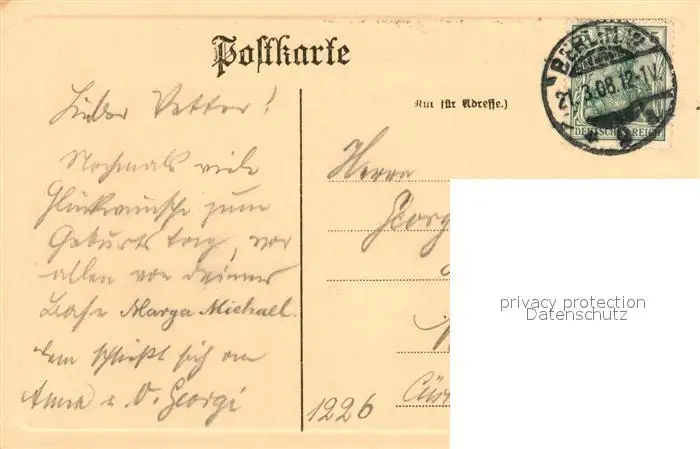 Postkarte
BERLIN
21.3.08.12-1V.
DEUTSCHES REICH
5
Nur für Adresse.)
Lieber Vetter!
Nochmals viele
Glückwünsche zum
Geburtstag, vor
allen von deiner
Base Marga Michael.
dem schließt sich an
Anna u. O. Georgi
Herrn
Georg
1226
privacy protection
Datenschutz